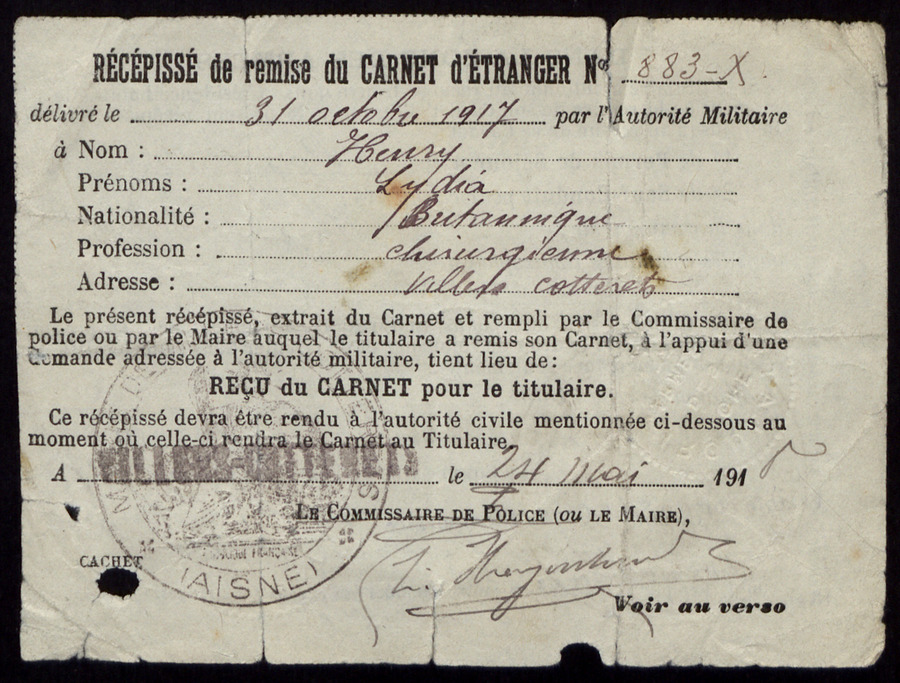 RÉCÉPISSÉ de remise du CARNET d'ÉTRANGER Nº 883-X.
délivré le 31 octobre 1917 par l'Autorité Militaire
à Nom : Henry
Prénoms : Lydia
Nationalité : Britannique
Profession : chirurgienne
Adresse : Villers cotterets
Le présent récépissé, extrait du Carnet et rempli par le Commissaire de
police ou par le Maire auquel le titulaire a remis son Carnet, à l'appui d'une
demande adressée à l'autorité militaire, tient lieu de :
REÇU du CARNET pour le titulaire.
Ce récépissé devra être rendu à l'autorité civile mentionnée ci-dessous au
moment où celle-ci rendra le Carnet au Titulaire.
A VILLERS-COTTERETS le 24 mai 1918
LE COMMISSAIRE DE POLICE (ou LE MAIRE),
CACHET
RÉPUBLIQUE FRANÇAISE
(AISNE)
Voir au verso